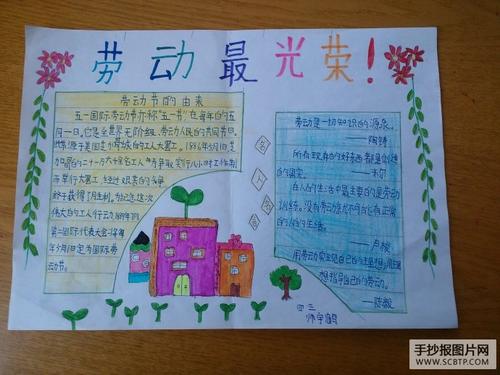 劳动最光荣!
劳动节的由来
五一国际劳动节亦称"五一节",在每年的五
月一日。它是全世界无产阶级、劳动人民的共同节日。
此节源于美国芝加哥城的工人大罢工。1886年5月1日,芝
加哥的二十一万六千余名工人为争取实行八小时工作制
而举行大罢工,经过艰苦的
终于获得了胜利。为纪念这次
伟大的工人运动,1889年的
第二国际代表大会
年5月1日定为国际劳
动节。
名人名言
劳动是一切知识的源泉。
——陶铸
所有现存的好东西都是创造
的果实。
——米尔
在人的生活中最主要的是劳动
训练。没有劳动就不可能有正常
的人的生活。
——卢梭
用劳动来
想指导自己的劳动。
——陈毅
四三
手抄报图片网
WWW.SCBTP.COM